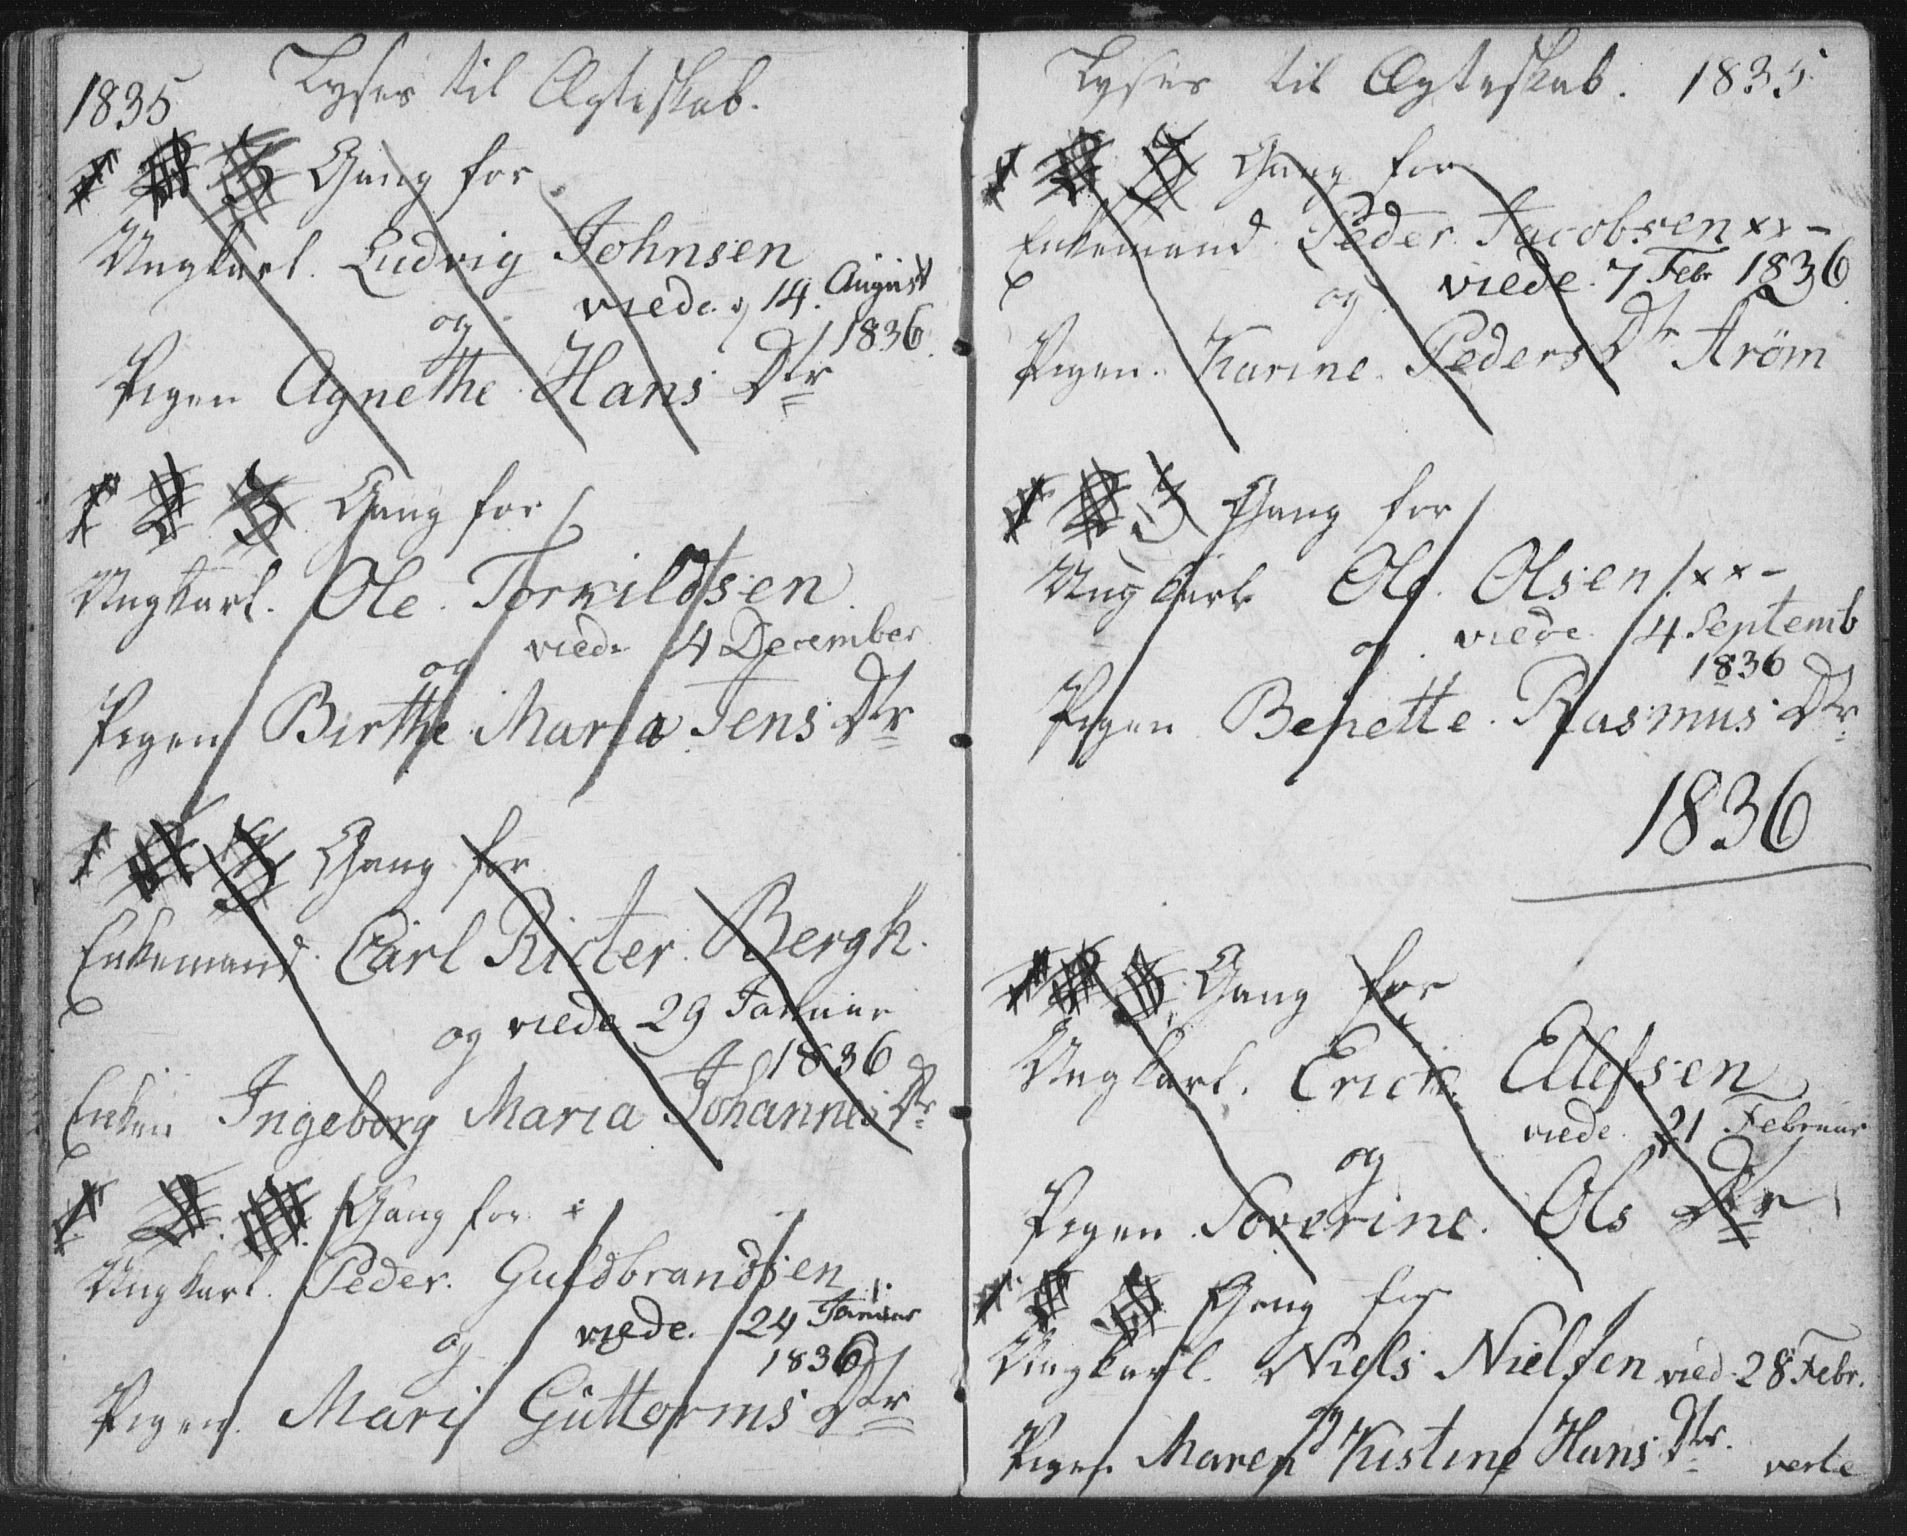 1835 Lyses til Ægteskab.
1 2 3 Gang for
Ungkarl. Ludvig Johnsen
og viede d 14. August
1836.
Pigen Agnethe Hans Dtr
1 2 3 Gang for
Ungkarl. Ole Torkildsen
viede 4 December
og
Pigen Birthe Maria Jens Dtr
1 2 3 Gang for
Enkemand. Carl Ricter Bergh.
og viede 29 Januar
1836
Enken Ingeborg Maria Johannes Dr
1 2 3 Gang for
Ungkarl. Peder. Guldbrandsen
og viede. 24 Januar
1836
Pigen Mari Guttorms Dtr
Lyses til Ægteskab. 1835.
1 2 3 Gang for
Enkemand Peder Jacobsen xx -
og viede 7 Febr 1836.
Pigen. Karine Peders Dtr Strøm
1 2 3 Gang for
Ungkarl Ole Olsen xx -
og viede 4 Septemb
1836
Pigen Benette Rasmus Dtr
1836
1 2 3 Gang for
Ungkarl. Erick Ellefsen
viede. 21 Februar
og
Pigen Soverine. Ols Dtr
1 2 3 Gang for
Ungkarl. Niels Nielsen vied. 28 Febr.
og
Pigen Maren Kistine Hans Dtr. verte